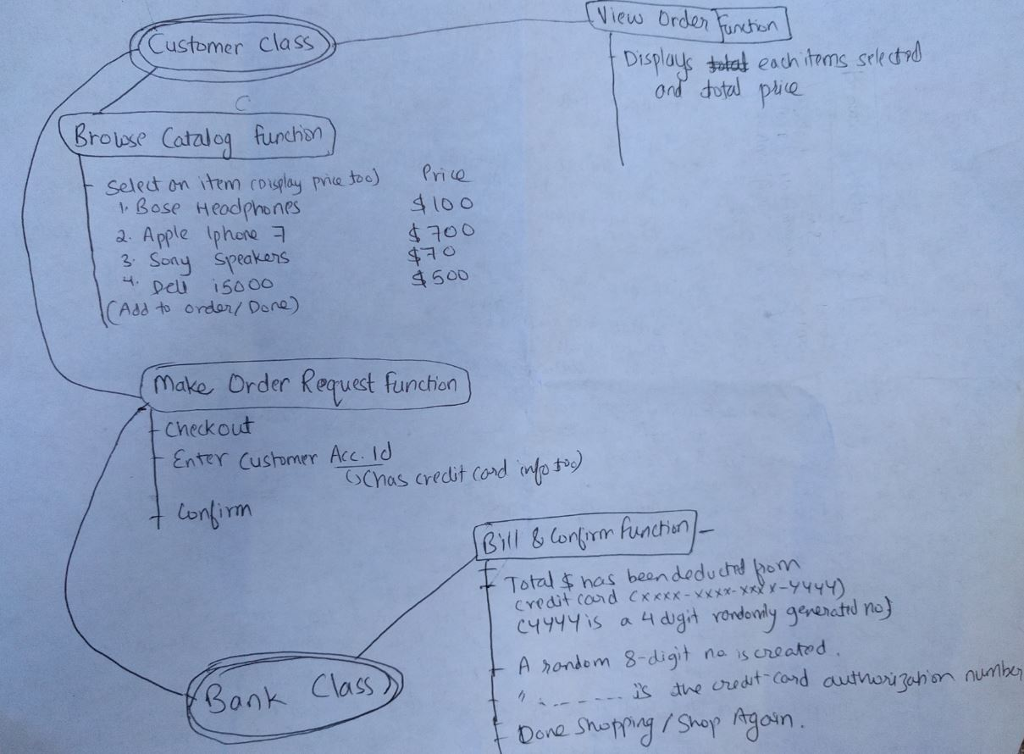 Customer Class
View Order Function
Displays total each items selected
and total price
C
Browse Catalog function
Select an item (Display price too) Price
1. Bose Headphones $100
2. Apple Iphone 7 $700
3. Sony Speakers $70
4. Dell i5000 $500
(Add to order/Done)
Make Order Request function
Checkout
Enter Customer Acc. Id
(has credit card info too)
Confirm
Bill & Confirm function
Total $ has been deducted from
credit card (xxxx-xxxx-xxxx-YYYY)
(YYYY is a 4 digit randomly generated no)
A random 8-digit no is created.
" ........ is the credit-card authorization number
Done Shopping / Shop Again.
Bank Class